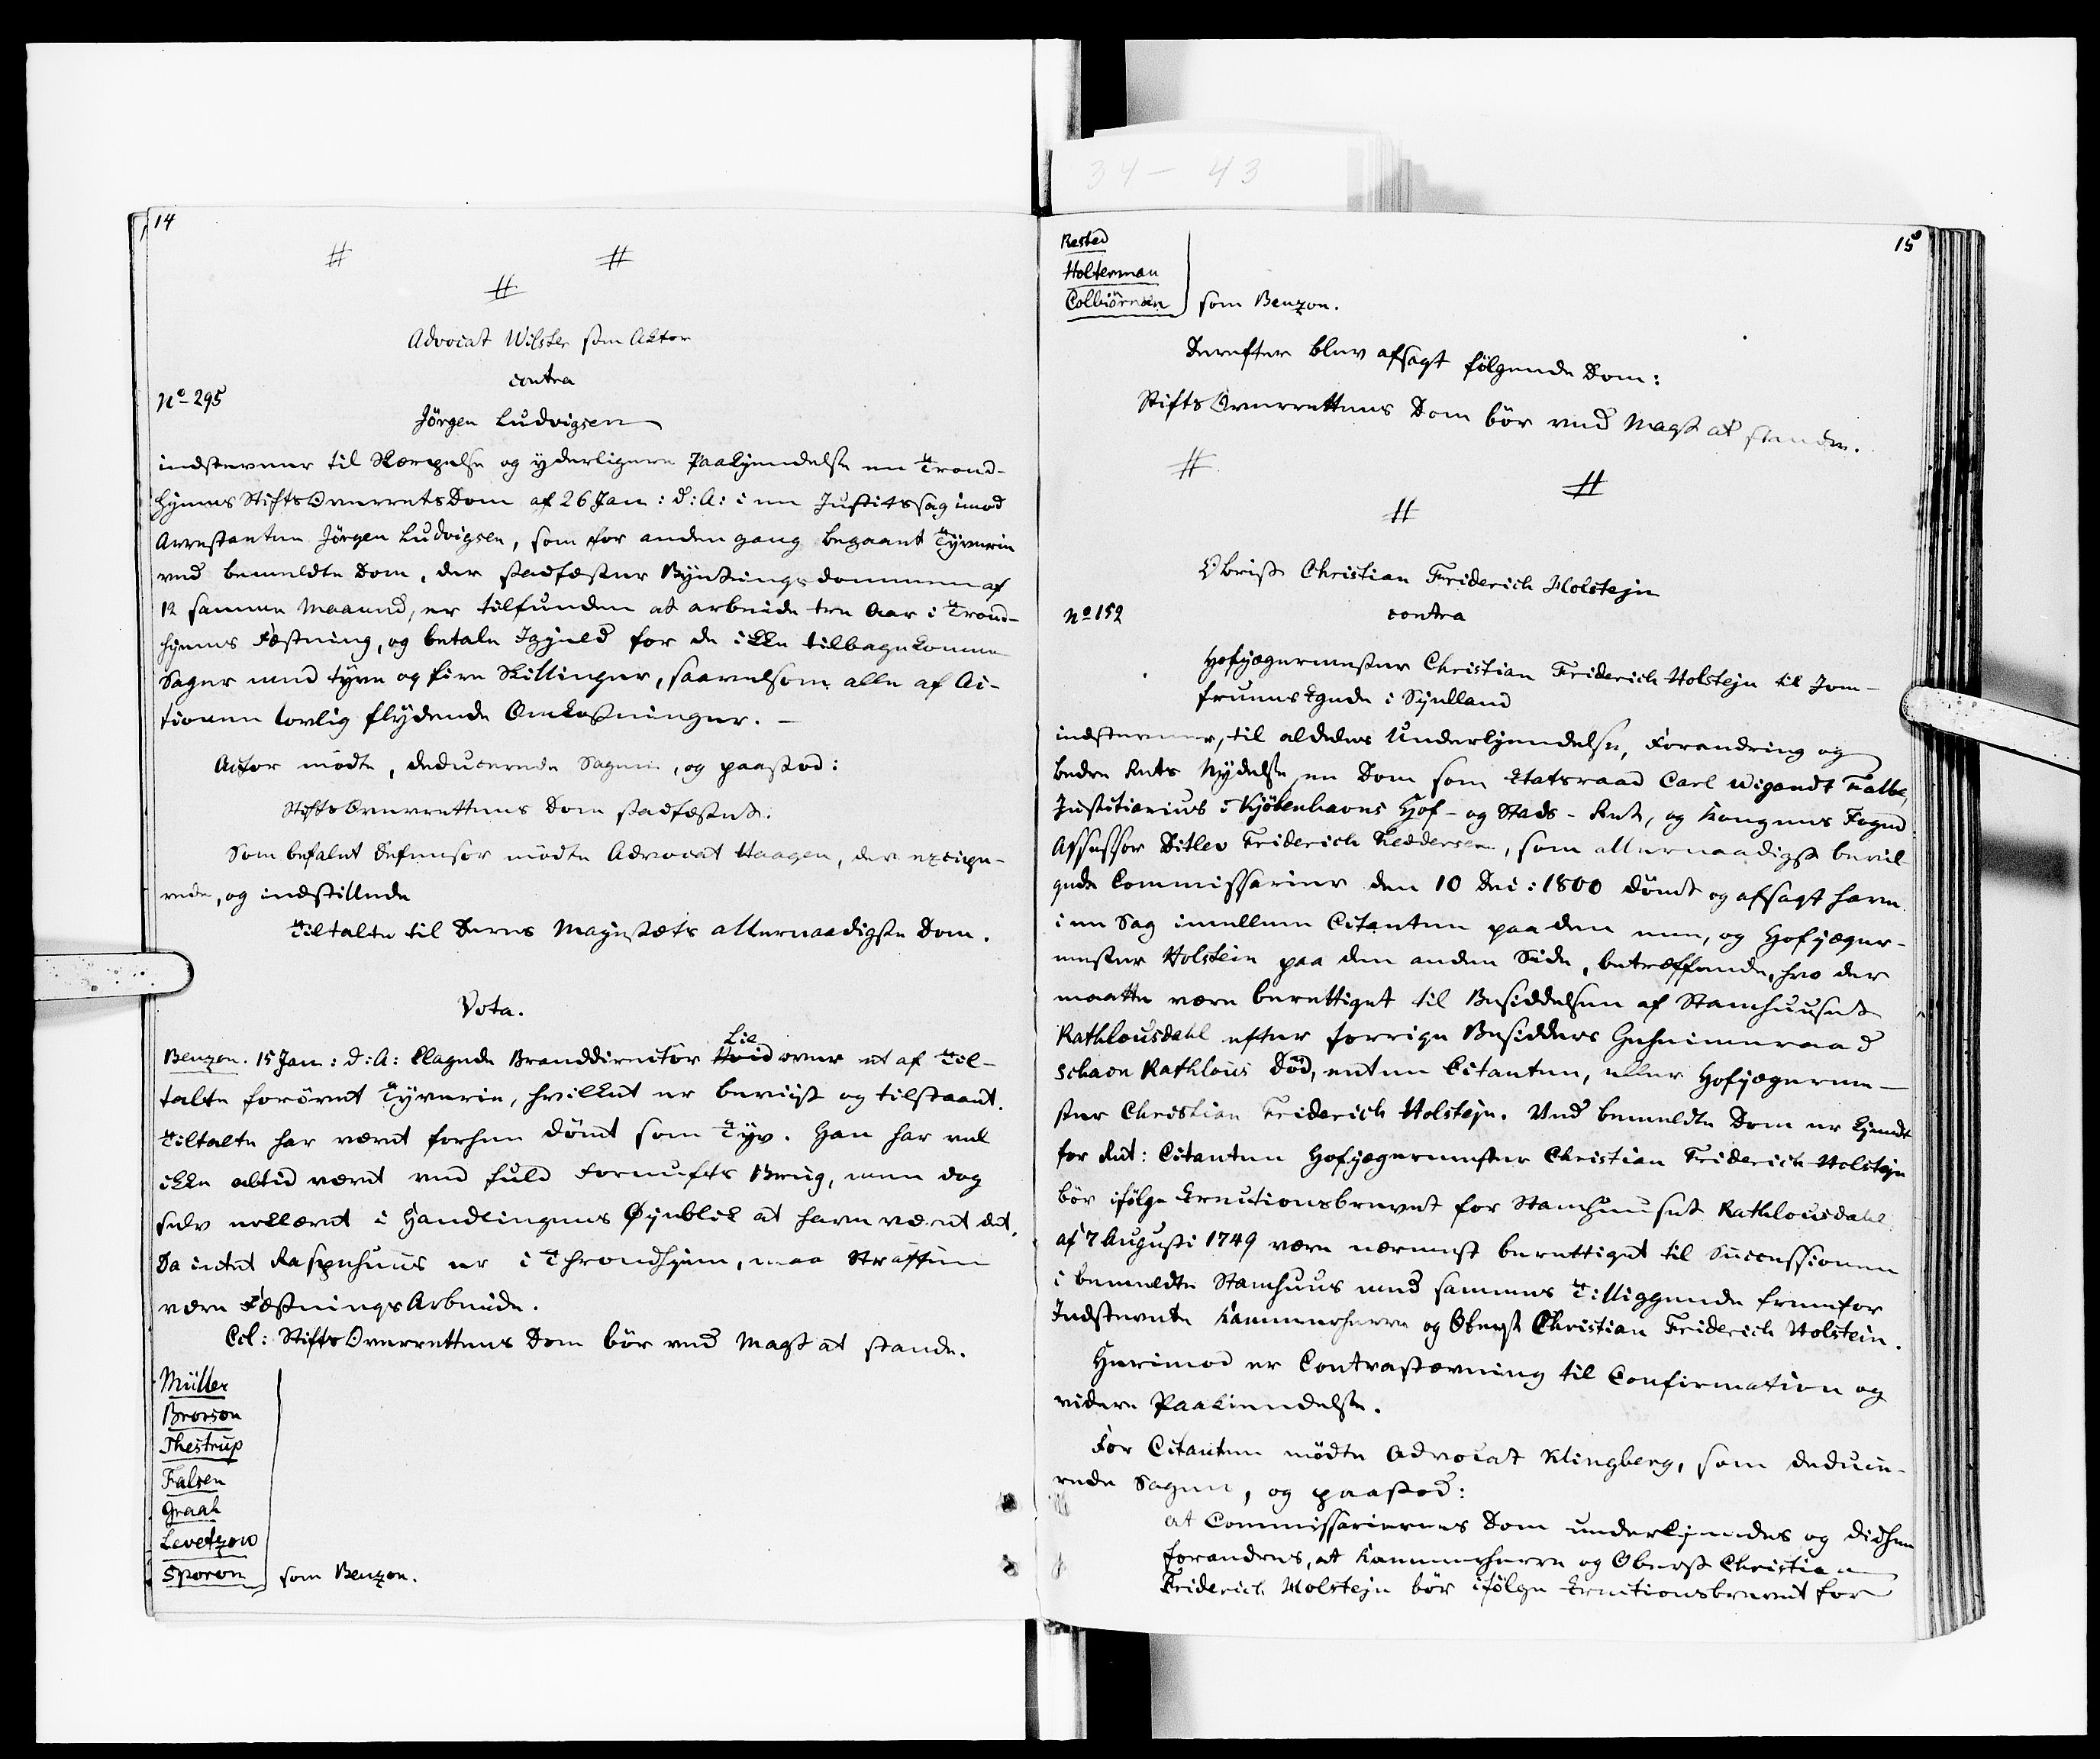 14
#
#
#
Advocat Wilster som Aktor
contra
No 295
Jörgen Ludvigsen
indstevner til Skærpelse og yderligere Paakjendelse en Trond-
hjems StiftsOverretsDom af 26 Jan: d: A: i en Justitssag imod
Arrestanten Jörgen Ludvigsen, som for anden gang begaaet Tyverie
ved bemeldte Dom, der stadfæster Bytingsdommen af
12 samme Maaned, er tilfunden at arbeide tre Aar i Trond-
hjems Fæstning, og betale Igjeld for de ikke tilbagekomne
Sager med tyve og fire Skillinger, saavelsom alle af Ac-
tionen lovlig flydende Omkostninger. —
Actor mödte, deducerede Sagen, og paastod:
StiftsOverrettens Dom stadfæstet.
Som befalet Defensor mödte Advocat Haagen, der excipe-
rede, og indstillede
Tiltalte til Deres Majestæts allernaadigste Dom.
Vota.
Lie
Benzon. 15 Jan: d: A: klagede Branddirecteur Hvid over et af Til-
talte forövet Tyverie, hvilket er beviist og tilstaaet.
Tiltalte har været forhen dömt som Tyv. Han har vel
ikke altid været ved fuld Fornufts Brug, men dog
selv erklæret i Handlingens Øjeblik at have været det.
Da intet Raspehuus er i Throndhjem, maa Straffen
være FæstningsArbeide.
Ccl: StiftsOverrettens Dom bör ved Magt at stande.
Müller
Brorson
Thestrup
Falsen
Graah
Levetzow
Sporon
som Benzon.
34 - 43
15
Rested
Holterman
Colbiörnsen
som Benzon.
Derefter blev afsagt fölgende Dom:
StiftsOverrettens Dom bör ved Magt at stande.
#
#
#
Obrist Christian Friderich Holstejn
No 152
contra
Hofjægermester Christian Friderich Holstejn til Jom-
fruens Egede i Sjelland
indstevner, til aldeles Underkjendelse, Forandring og
bedre Rets Nydelse, en Dom som Etatsraad Carl Wigandt Falbe,
Justitiarius i Kjöbenhavns Hof- og Stads-Ret, og Kongens Foged
Assessor Ditlev Friderich Feddersen, som allernaadigst bevil-
gede Commissarier den 10 Dec: 1800 dömt og afsagt have
i en Sag imellem Citanten paa den ene, og Hofjæger-
mester Holstein paa den anden Side, betræffende, hvo der
maatte være berettiget til Besiddelsen af Stamhuuset
Rathlousdahl efter forrige Besidders Geheimeraad
Schack Rathlous Död, enten Citanten, eller Hofjægerme-
ster Christian Friderich Holstejn. Ved bemeldte Dom er kjendt
for Ret: Citanten Hofjægermester Christian Friderich Holstejn
bör ifölge Erectionsbrevet for Stamhuuset Rathlousdahl
af 7 Augusti 1749 være nærmest berettiget til Successionen
i bemeldte Stamhuus med sammes Tilliggende fremfor
Indstevnte Kammerherre og Oberst Christian Friderich Holstein.
Herimod er Contrastævning til Confirmation og
videre Paakiendelse.
For Citanten mödte Advocat Klingberg, som deduce-
rede Sagen, og paastod:
at Commissariernes Dom underkjendes og didhen
forandres, at Kammerherre og Oberst Christian
Friderich Holstejn bör ifölge Erectionsbrevet for